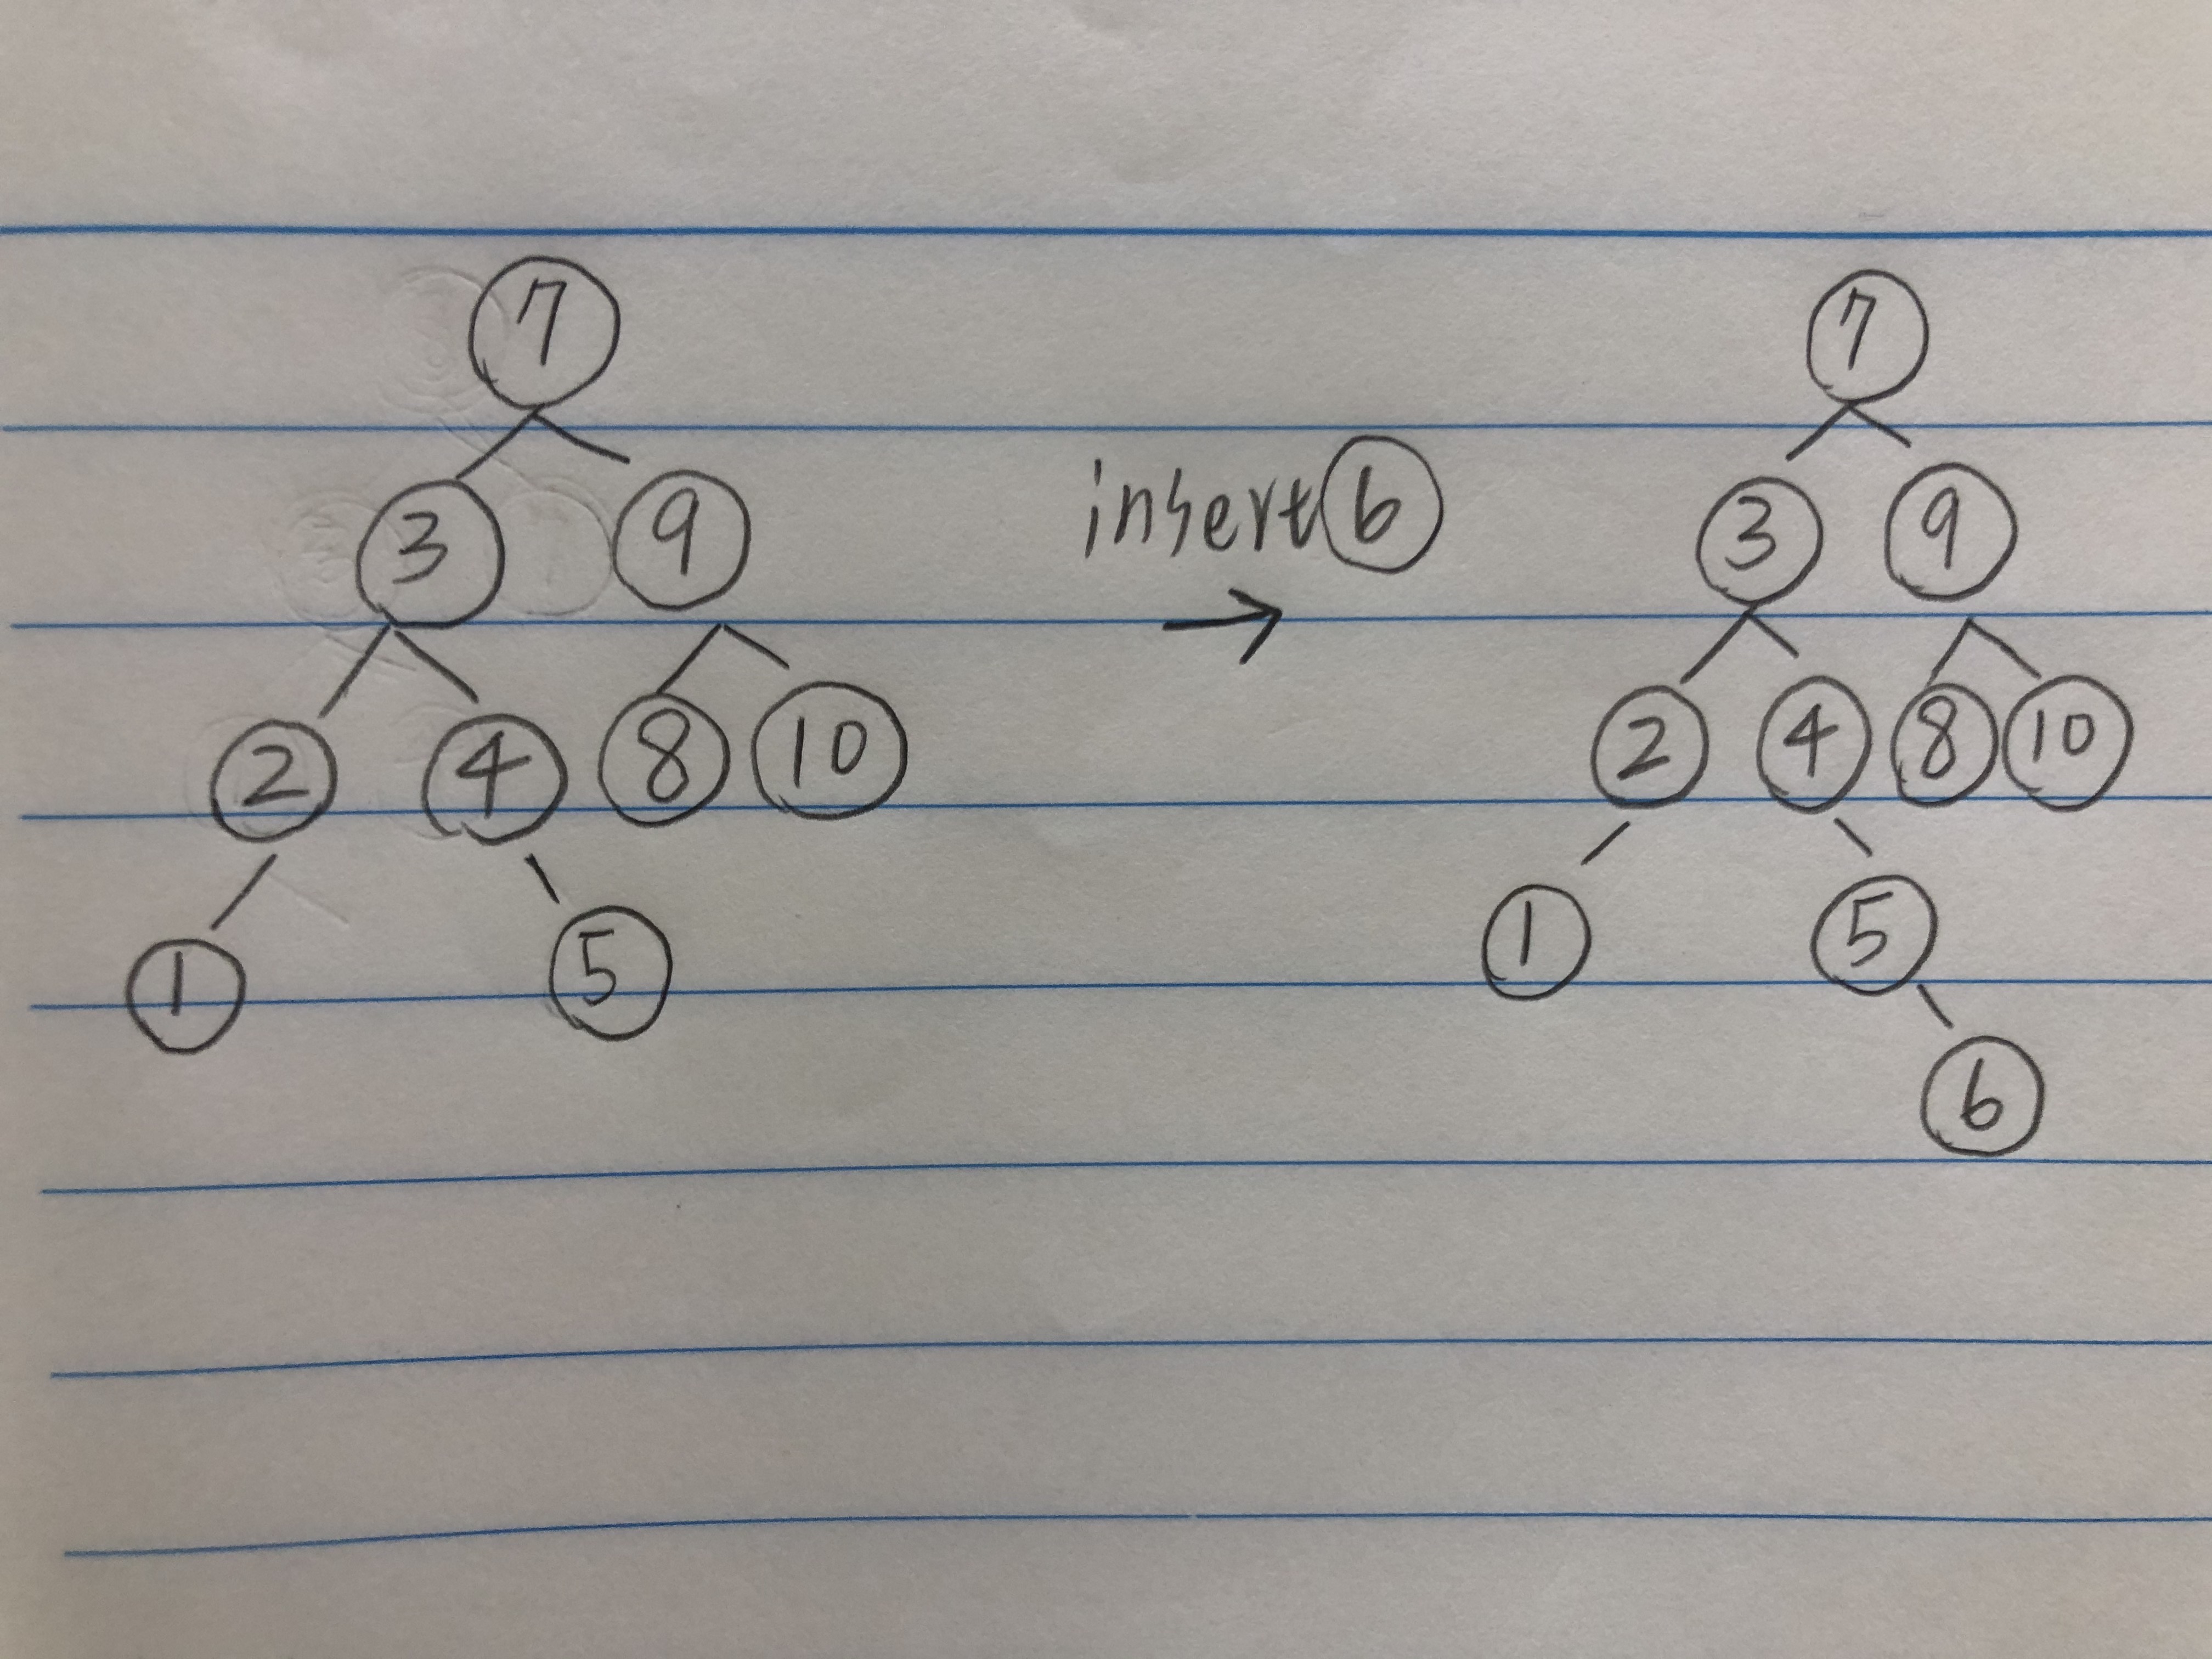 7
3 9
2 4 8 10
1 5
insert 6
→
7
3 9
2 4 8 10
1 5
6